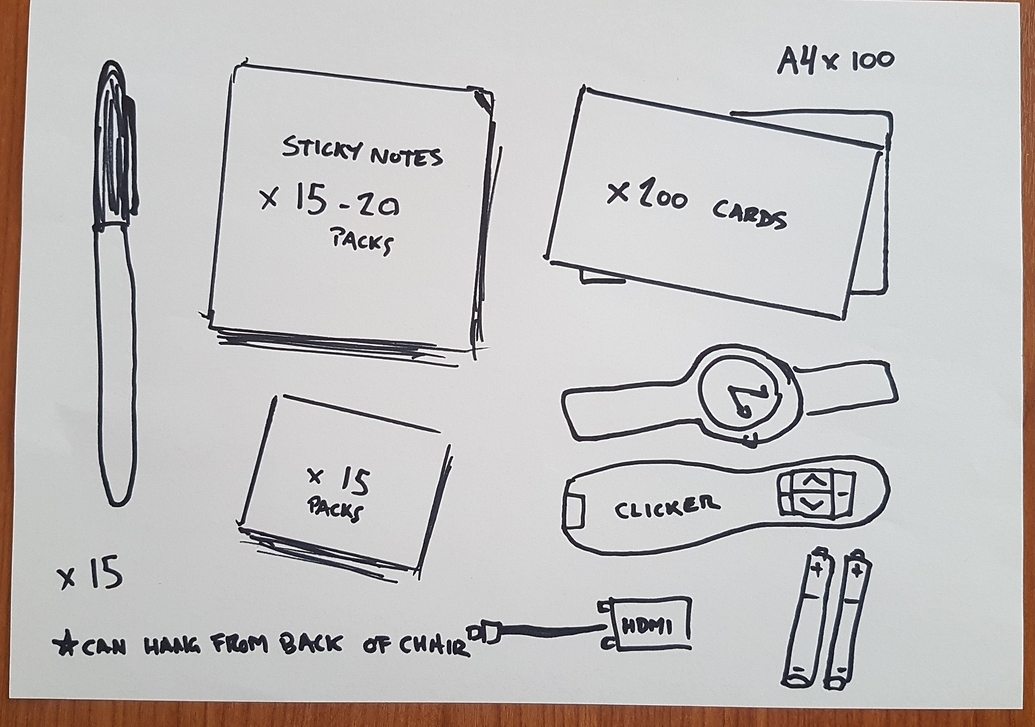 A4 x 100
STICKY NOTES
x 15-20
PACKS
x 200 CARDS
x 15
PACKS
CLICKER
x 15
HDMI
★CAN HANG FROM BACK OF CHAIR